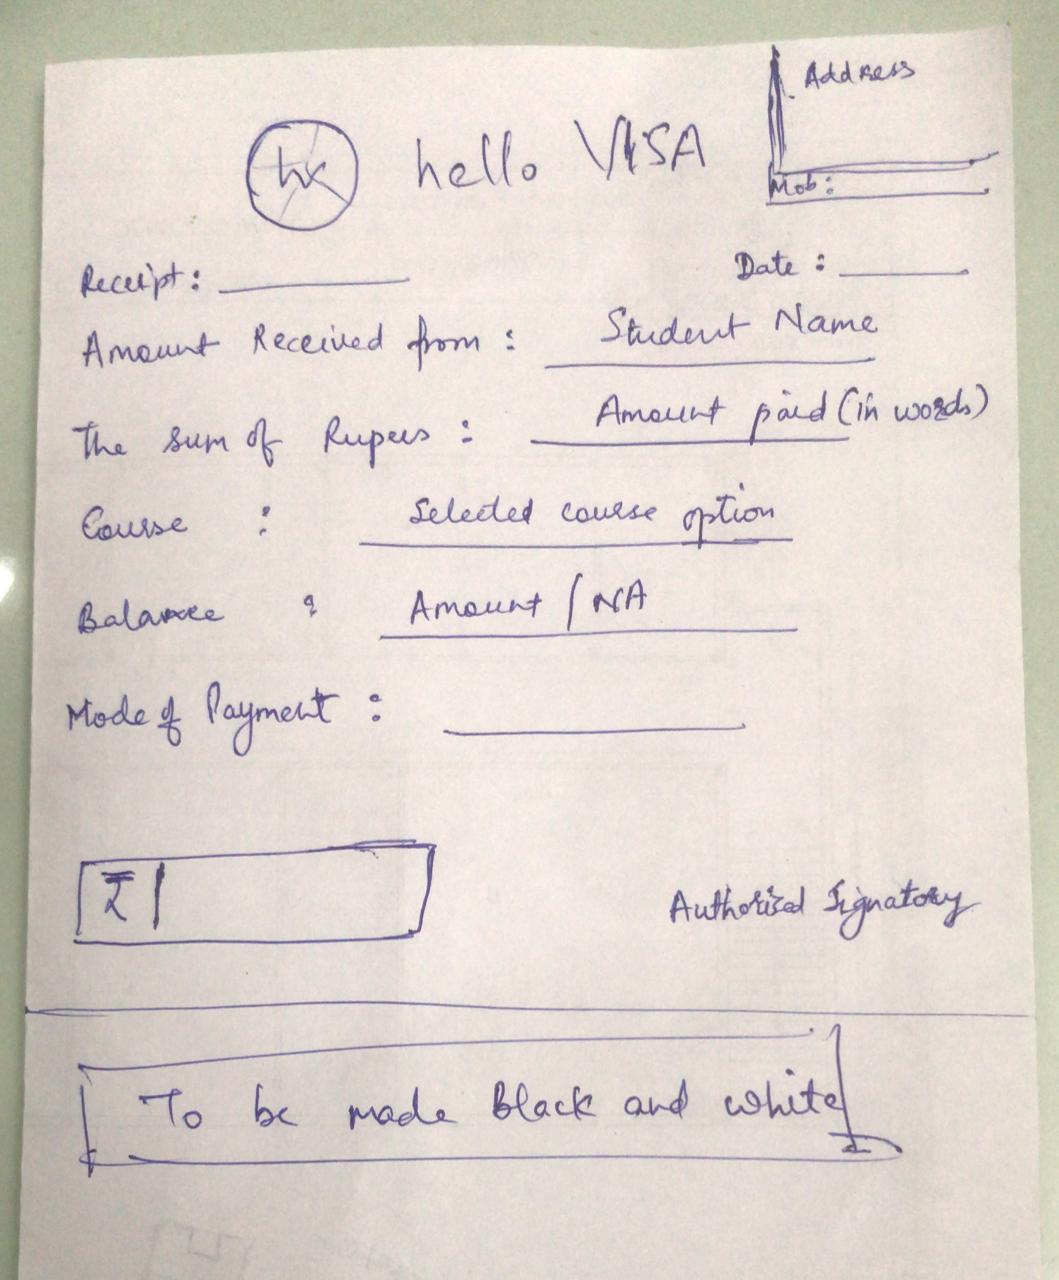 Address
hk hello VISA
Mob:
Receipt: Date:
Amount Received from: Student Name
The Sum of Rupees: Amount paid (in words)
Course : Selected course option
Balance : Amount / NA
Mode of Payment :
₹
Authorised Signatory
To be made Black and white